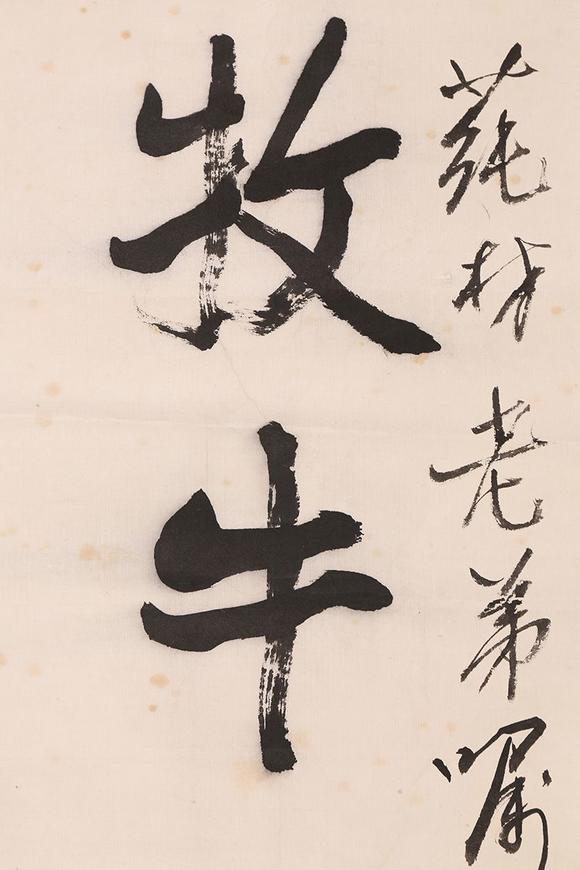 莼材老弟嘱
牧牛